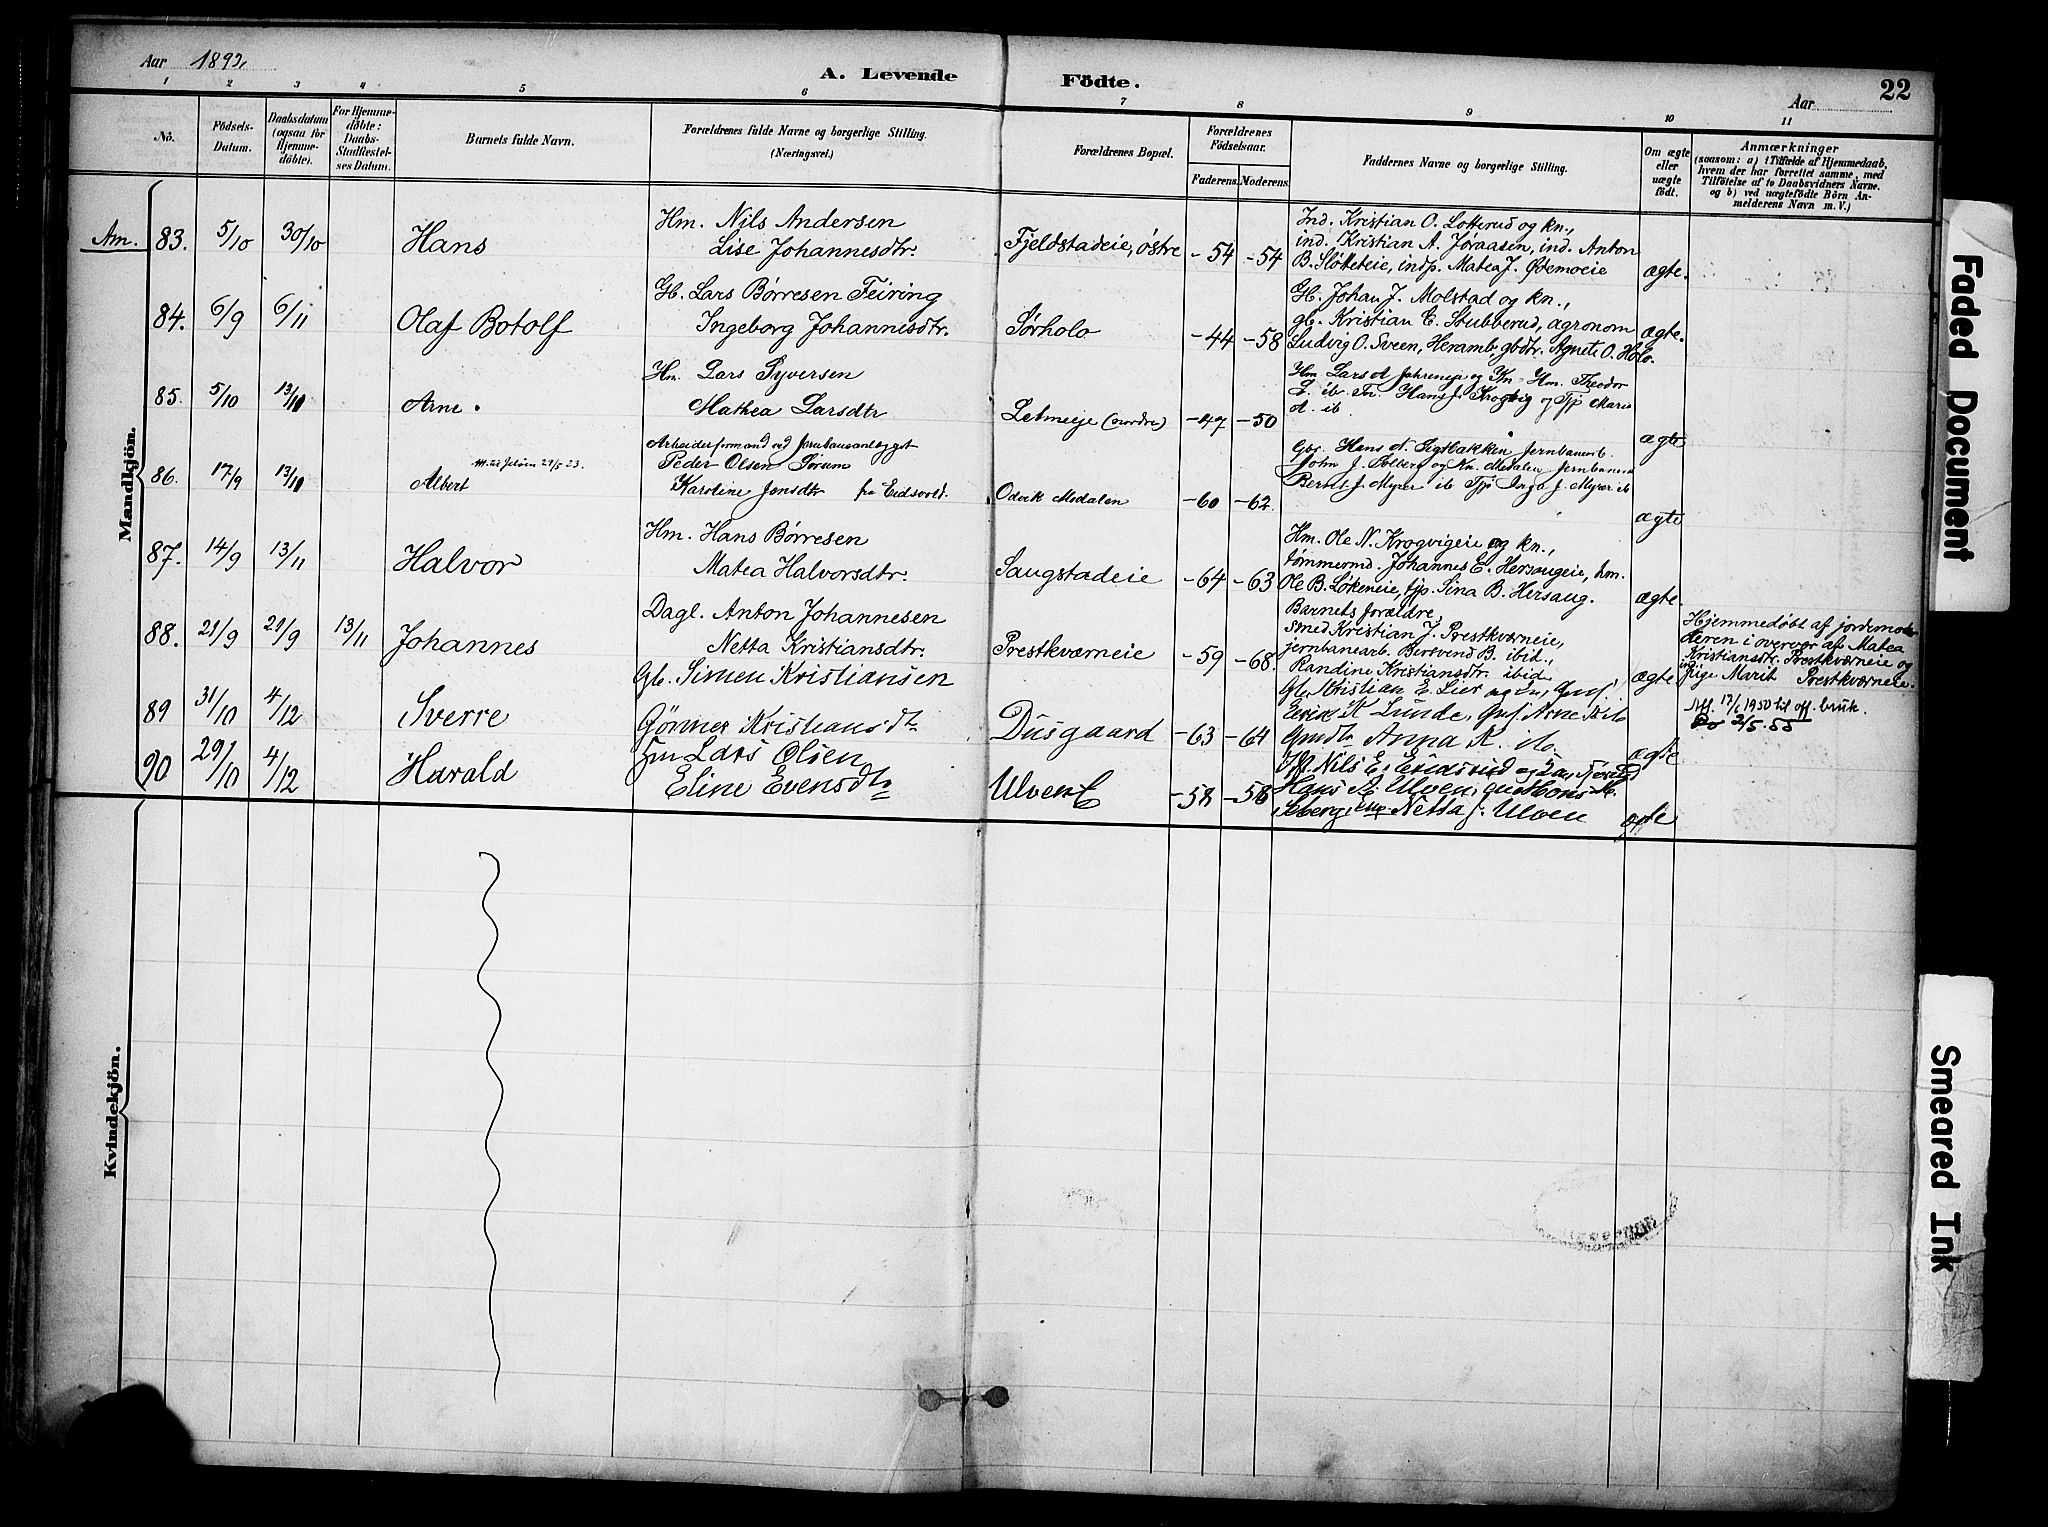 Aar 1893.
A. Levende Födte.
22
Aar
1 2 3 4 5 6 7 8 9 10 11
No.
Födsels-Datum.
Daabsdatum (ogsaa for Hjemme-döbte).
For Hjemme-döbte: Daabs-Stadfæstel-ses Datum.
Barnets fulde Navn.
Forældrenes fulde Navne og borgerlige Stilling. (Næringsvei.)
Forældrenes Bopæl.
Forældrenes Födselsaar.
Faderens. Moderens.
Faddernes Navne og borgerlige Stilling.
Om ægte eller uægte födt.
Anmærkninger
(soasom: a) i Tilfælde af Hjemmedaab, hvem der har forrettet samme, med Tilföielse af to Daabsvidners Navne, og b) ved uægtefödte Börn An-melderens Navn m. V.)
Mandkjön.
Am.
83. 5/10 30/10 Hans
Hm. Nils Andersen
Lise Johannesdtr.
Fjeldstadeie, østre -54 -54
Ind. Kristian O. Lotterud og kn.,
ind. Kristian A. Jøraasen, ind. Anton
B. Slötteeie, indp. Matea J. Østemoeie
ægte.
84. 6/9 6/11 Olaf Botolf
Gb. Lars Børresen Feiring
Ingeborg Johannesdtr.
Sørholo -44 -58
Gb. Johan J. Molstad og kn.,
gb. Kristian E. Stubberud, agronom
Ludvig O. Sveen, Heramb, gbdtr. Agnete O. Holo.
ægte.
85. 5/10 13/10 Arne.
Hm. Lars Syversen
Mathea Larsdtr
Letmeeje (nordre) -47 -50
Hm Lars A og Kn Hm. Theodor
L. ib. Hans J. Krogvig og Tjp Marie
A. ib
ægte
86. 17/9 13/10 Albert
Arbeiderformand ved Jernbaneanlægget
Peder Olsen Sørum
Karoline Jensdtr fra Eidsvold.
Odvik Medalen -60 -62.
Gbr. Hans A. Sigstbakken Jernbanearb.
John J. Solberg og Kn. Medalen Jernbanearb
Bernt J. Myrer ib Tjp Inga J. Myrer ib
ægte
87. 14/9 13/11 Halvor
Hm. Hans Børresen
Matea Halvorsdtr.
Saugstadeie -64 -63
Hm. Ole N. Krogvigeie og kn.,
tømmermd. Johannes E. Hersaugeie, hm.
Ole B. Løkeneie, tjp. Sina B. Hersaug.
ægte.
88. 21/9 21/9 13/11 Johannes
Dagl. Anton Johannesen
Netta Kristiansdtr.
Prestkværneie -59 -68.
Barnets forældre,
smed Kristian J. Prestkværneie,
jernbanearb. Bersvend B. ibid.,
Randine Kristiansdtr. ibid.
ægte
Hjemmedøbt af jordemo-
deren i overvær af Matea
Kristiansdtr. Prestkværneie og
Pige Marit Prestkværneie.
89 31/10 4/12 Sverre
Gb. Simen Kristiansen
Gönner Kristiansdtr
Dusgaard -63 -64
Gb. Kristian E. Lier og
Erik K Lunde, Arne K ib
Anna K. ib.
ægte
Att. 17/6 1950 til off. bruk.
2/5.55
90 29/10 4/12 Harald
Hm Lars Olsen
Eline Evensdtr
Ulven -58 -58
Nils E.
Hans P. Ulven
Seberg, Netta J. Ulven
ægte
Kvindekjön.
Faded Document
Smeared Ink